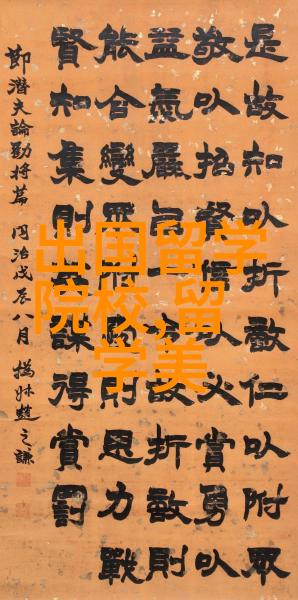 是故知以折敵仁以附眾
敬以招賢信以必賞勇以
益氣嚴以一令故折敵則
能合變眾附愛則思力戰
賢知集則陰謀得賞罰
節潛夫論勸將篇 同治戊辰八月 撝叔趙之謙
出国留学
院校,留
学美